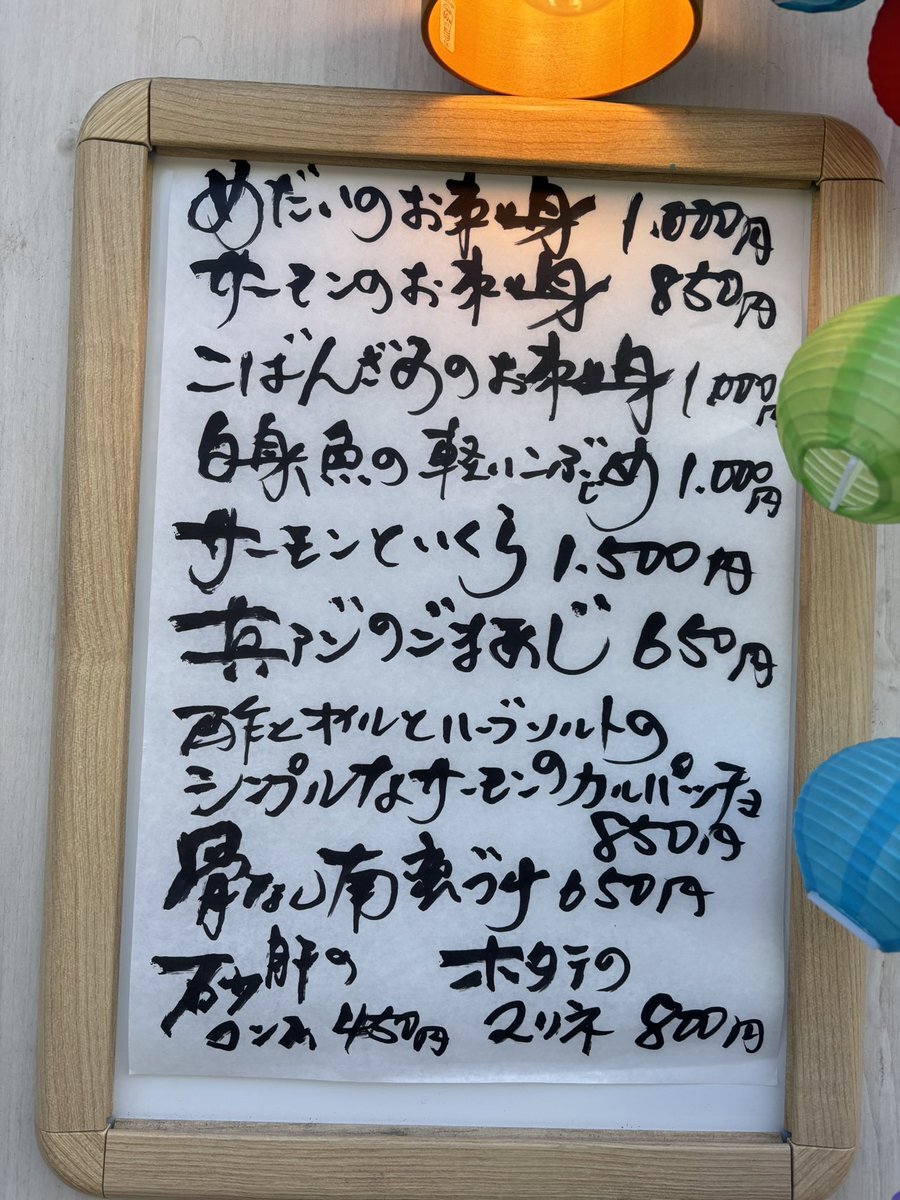 めだいのお刺身 1.000円
サーモンのお刺身 850円
こばんざめのお刺身 1.000円
白身魚の軽いこぶじめ 1.000円
サーモンといくら 1.500円
真アジのごまあじ 650円
酢とオイルとハーブソルトの
シンプルなサーモンのカルパッチョ
850円
骨なし南蛮づけ 650円
砂肝の ホタテの
コンフィ 450円 マリネ 800円